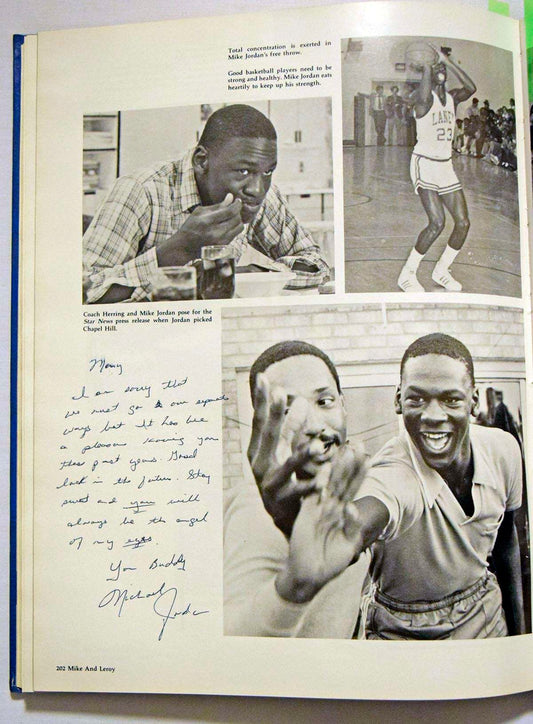 Total concentration is exerted in
Mike Jordan's free throw.
Good basketball players need to be
strong and healthy. Mike Jordan eats
heartily to keep up his strength.
LANEY
23
Coach Herring and Mike Jordan pose for the
Star News press release when Jordan picked
Chapel Hill.
I am sorry that
we must go our
ways but It has
a pleasure knowing you
these past years. Good
luck in the future. Stay
sweet and you will
always be the angel
of my eyes.
You Buddy
Michael Jordan
202 Mike And Leroy